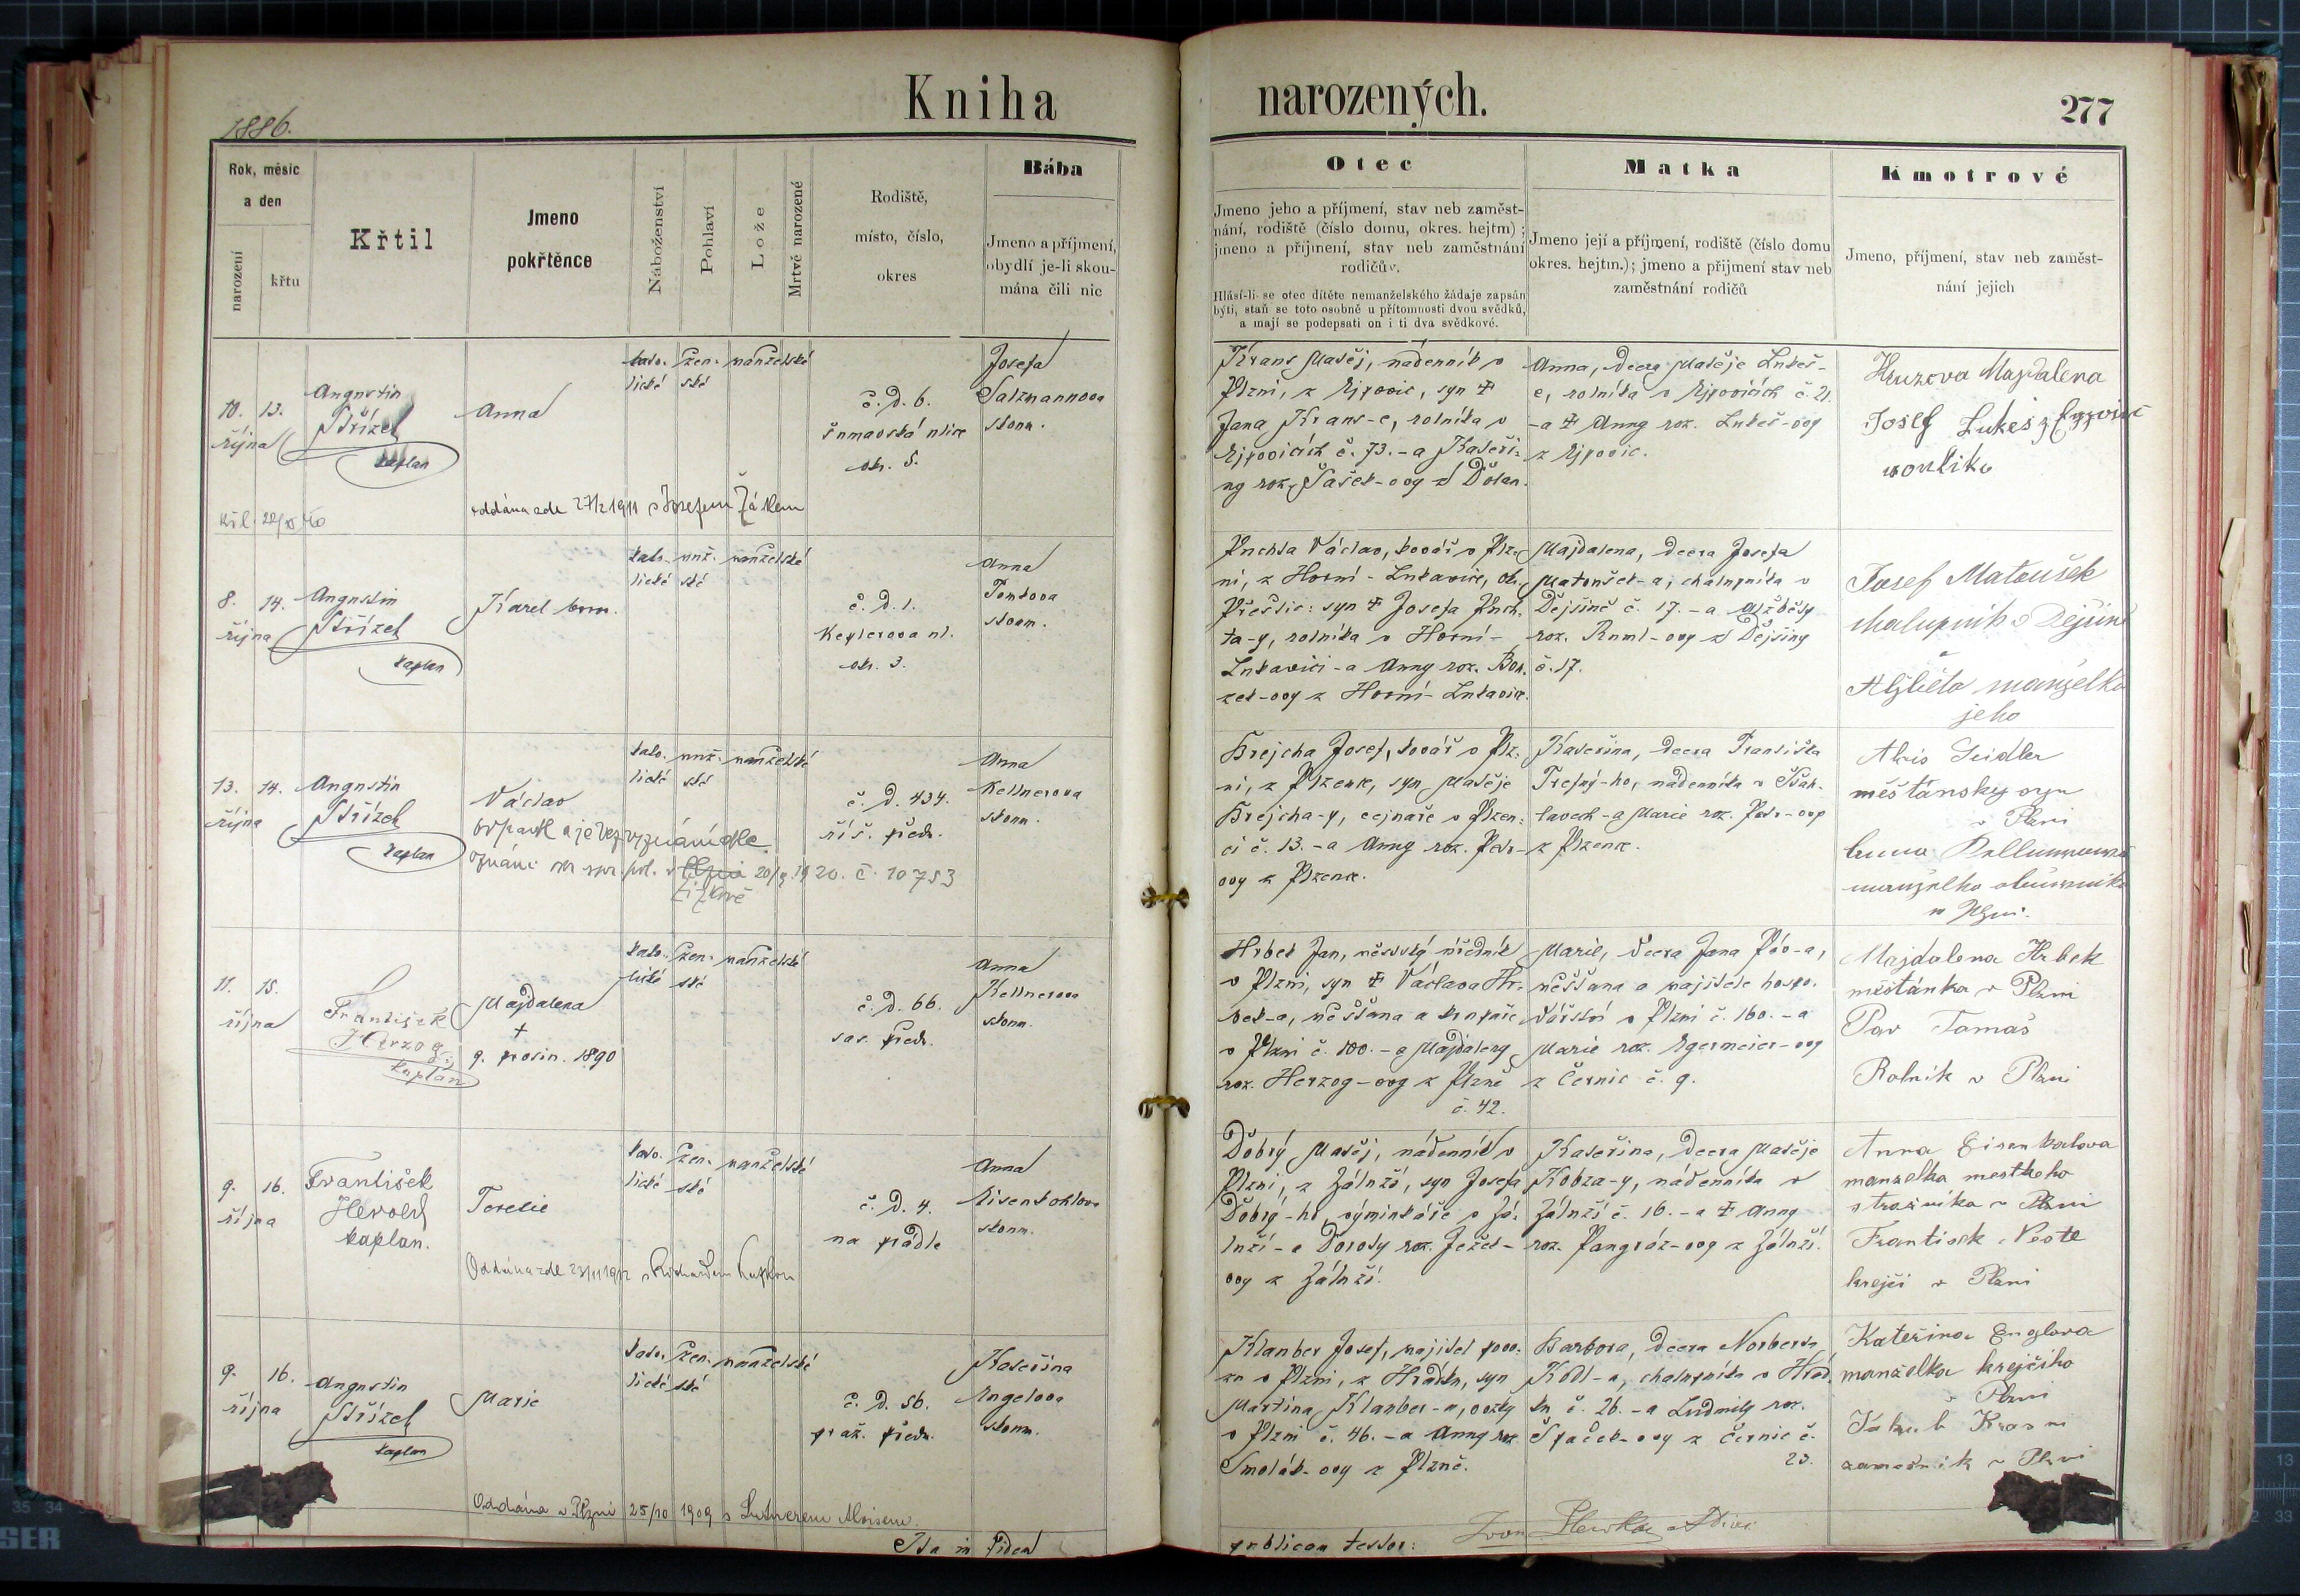 Kniha
narozených.
277
1886.
Rok, měsíc
a den
narození
křtu
Křtil
Jmeno
pokřtěnce
Náboženství
Pohlaví
Lože
Mrtvě narozené
Rodiště,
místo, číslo,
okres
Bába
Jmeno a příjmení,
obydlí je-li skou-
mána čili nic
Otec
Jmeno jeho a příjmení, stav neb zaměst-
nání, rodiště (číslo domu, okres. hejtm) ;
jmeno a příjmení, stav neb zaměstnání
rodičův.
Hlásí-li se otec dítěte nemanželského žádaje zapsán
býti, staň se toto osobně u přítomnosti dvou svědků,
a mají se podepsati on i ti dva svědkové.
Matka
Jmeno její a příjmení, rodiště (číslo domu
okres. hejtm.); jmeno a příjmení stav neb
zaměstnání rodičů
Kmotrové
Jmeno, příjmení, stav neb zaměst-
nání jejich
10. 13.
října
Augustin
Střízek
kaplan
Anna
kato-
lické
žen-
ské
manželské
č. d. 6.
šumavská ulice
okr. 5.
Josefa
Salzmannova
zkoum.
Krans Matěj, nádenník v
Plzni, z Ejpovic, syn †
Jana Krans-e, rolníka v
Ejpovicích č. 73. - a Kateři-
ny roz. Šašek-ovy z Dolan.
Anna, dcera Matěje Lukeš-
e, rolníka v Ejpovicích č. 21.
- a † Anny roz. Lukeš-ovy
z Ejpovic.
Magdalena
Josef Lukeš z
oddána zde 27/2 1911 s Josefem Žákem
8. 14.
října
Augustin
Střízek
kaplan
Karel
kato-
lické
muž-
ské
manželské
č. d. 1.
Keplerova ul.
okr. 3.
Anna
Tentova
zkoum.
Puchta Václav, kovář v Plz-
ni, z Horní-Lukavice, ok.
Přeštic: syn † Josefa Puch-
ta-y, rolníka v Horní-
Lukavici - a Anny roz.
z Horní-Lukavice.
Majdalena, dcera Josefa
Matoušek-a, chalupníka v
Dejšině č. 17. - a Alžběty
roz. Ruml-ovy z Dejšiny
č. 17.
Josef Matoušek
chalupník v Dejšině
a
Alžběta manželka
jeho
13. 14.
října
Augustin
Střízek
kaplan
Václav
kato-
lické
muž-
ské
manželské
č. d. 434.
říš. předm.
Anna
Kellnerova
zkoum.
Brejcha Josef, kovář v Plz-
ni, z Plzence, syn Matěje
Brejcha-y, cejnaře v Plzen-
ci č. 13. - a Anny roz. Petr-
ovy z Plzence.
Kateřina, dcera Františka
Trefný-ho, nádenníka v Šťáh-
lavech - a Marie roz. Petr-ovy
z Plzence.
Alois Seidler
měštanský syn
v Plzni
manželka
v Plzni.
odpadl a je bez vyznání dle
oznám. pol. v 20/9 1920. č. 10753
11. 15.
října
František
Herzog
kaplan
Majdalena
†
9. prosin. 1890
kato-
lické
žen-
ské
manželské
č. d. 66.
sas. předm.
Anna
Kellnerova
zkoum.
Hrbek Jan, městský úředník
v Plzni, syn † Václava Hr-
bek-a, měšťana a krupaře
v Plzni č. 100. - a Majdaleny
roz. Herzog-ovy z Plzně
č. 42.
Marie, dcera Jana Páv-a,
měšťana a majitele hospo-
dářství v Plzni č. 160. - a
Marie roz. Egermeier-ovy
z Černic č. 9.
Majdalena Hrbek
měštánka v Plzni
Pav Tomáš
Rolník v Plzni
9. 16.
října
František
Herold
kaplan.
Terezie
kato-
lické
žen-
ské
manželské
č. d. 4.
na prádle
Anna
Eisenkohlova
zkoum.
Dobrý Matěj, nádenník v
Plzni, z Zálnží, syn Josefa
Dobrý-ho, výminkáře v Zá-
lnží - a Doroty roz. Ježek-
ovy z Zálnží.
Kateřina, dcera Matěje
Kobza-y, nádenníka v
Zálnží č. 16. - a † Anny
roz. Pangráz-ovy z Zálnží.
Anna Eisenkohlova
manzelka mestkeho
stražníka v Plzni
František
krejči v Plzni
Oddána zde 23/11 1912 s Richardem
9. 16.
října
Augustin
Střízek
kaplan
Marie
kato-
lické
žen-
ské
manželské
č. d. 56.
praž. předm.
Kateřina
Engelova
zkoum.
Klauber Josef, majitel povo-
zu v Plzni, z Hrádku, syn
Martina Klauber-a,
v Plzni č. 46. - a Anny roz.
Smolák-ovy z Plzně.
Barbora, dcera Norberta
Ködl-a, chalupníka v Hrád-
ku č. 26. - a Ludmily roz.
Špaček-ovy z Černic č.
23.
Kateřina Englova
manželka krejčího
v Plzni
Jakub
v Plzni
Oddána v Plzni 25/10 1909 s Aloisem.
Ita in fidem
publicam testor: